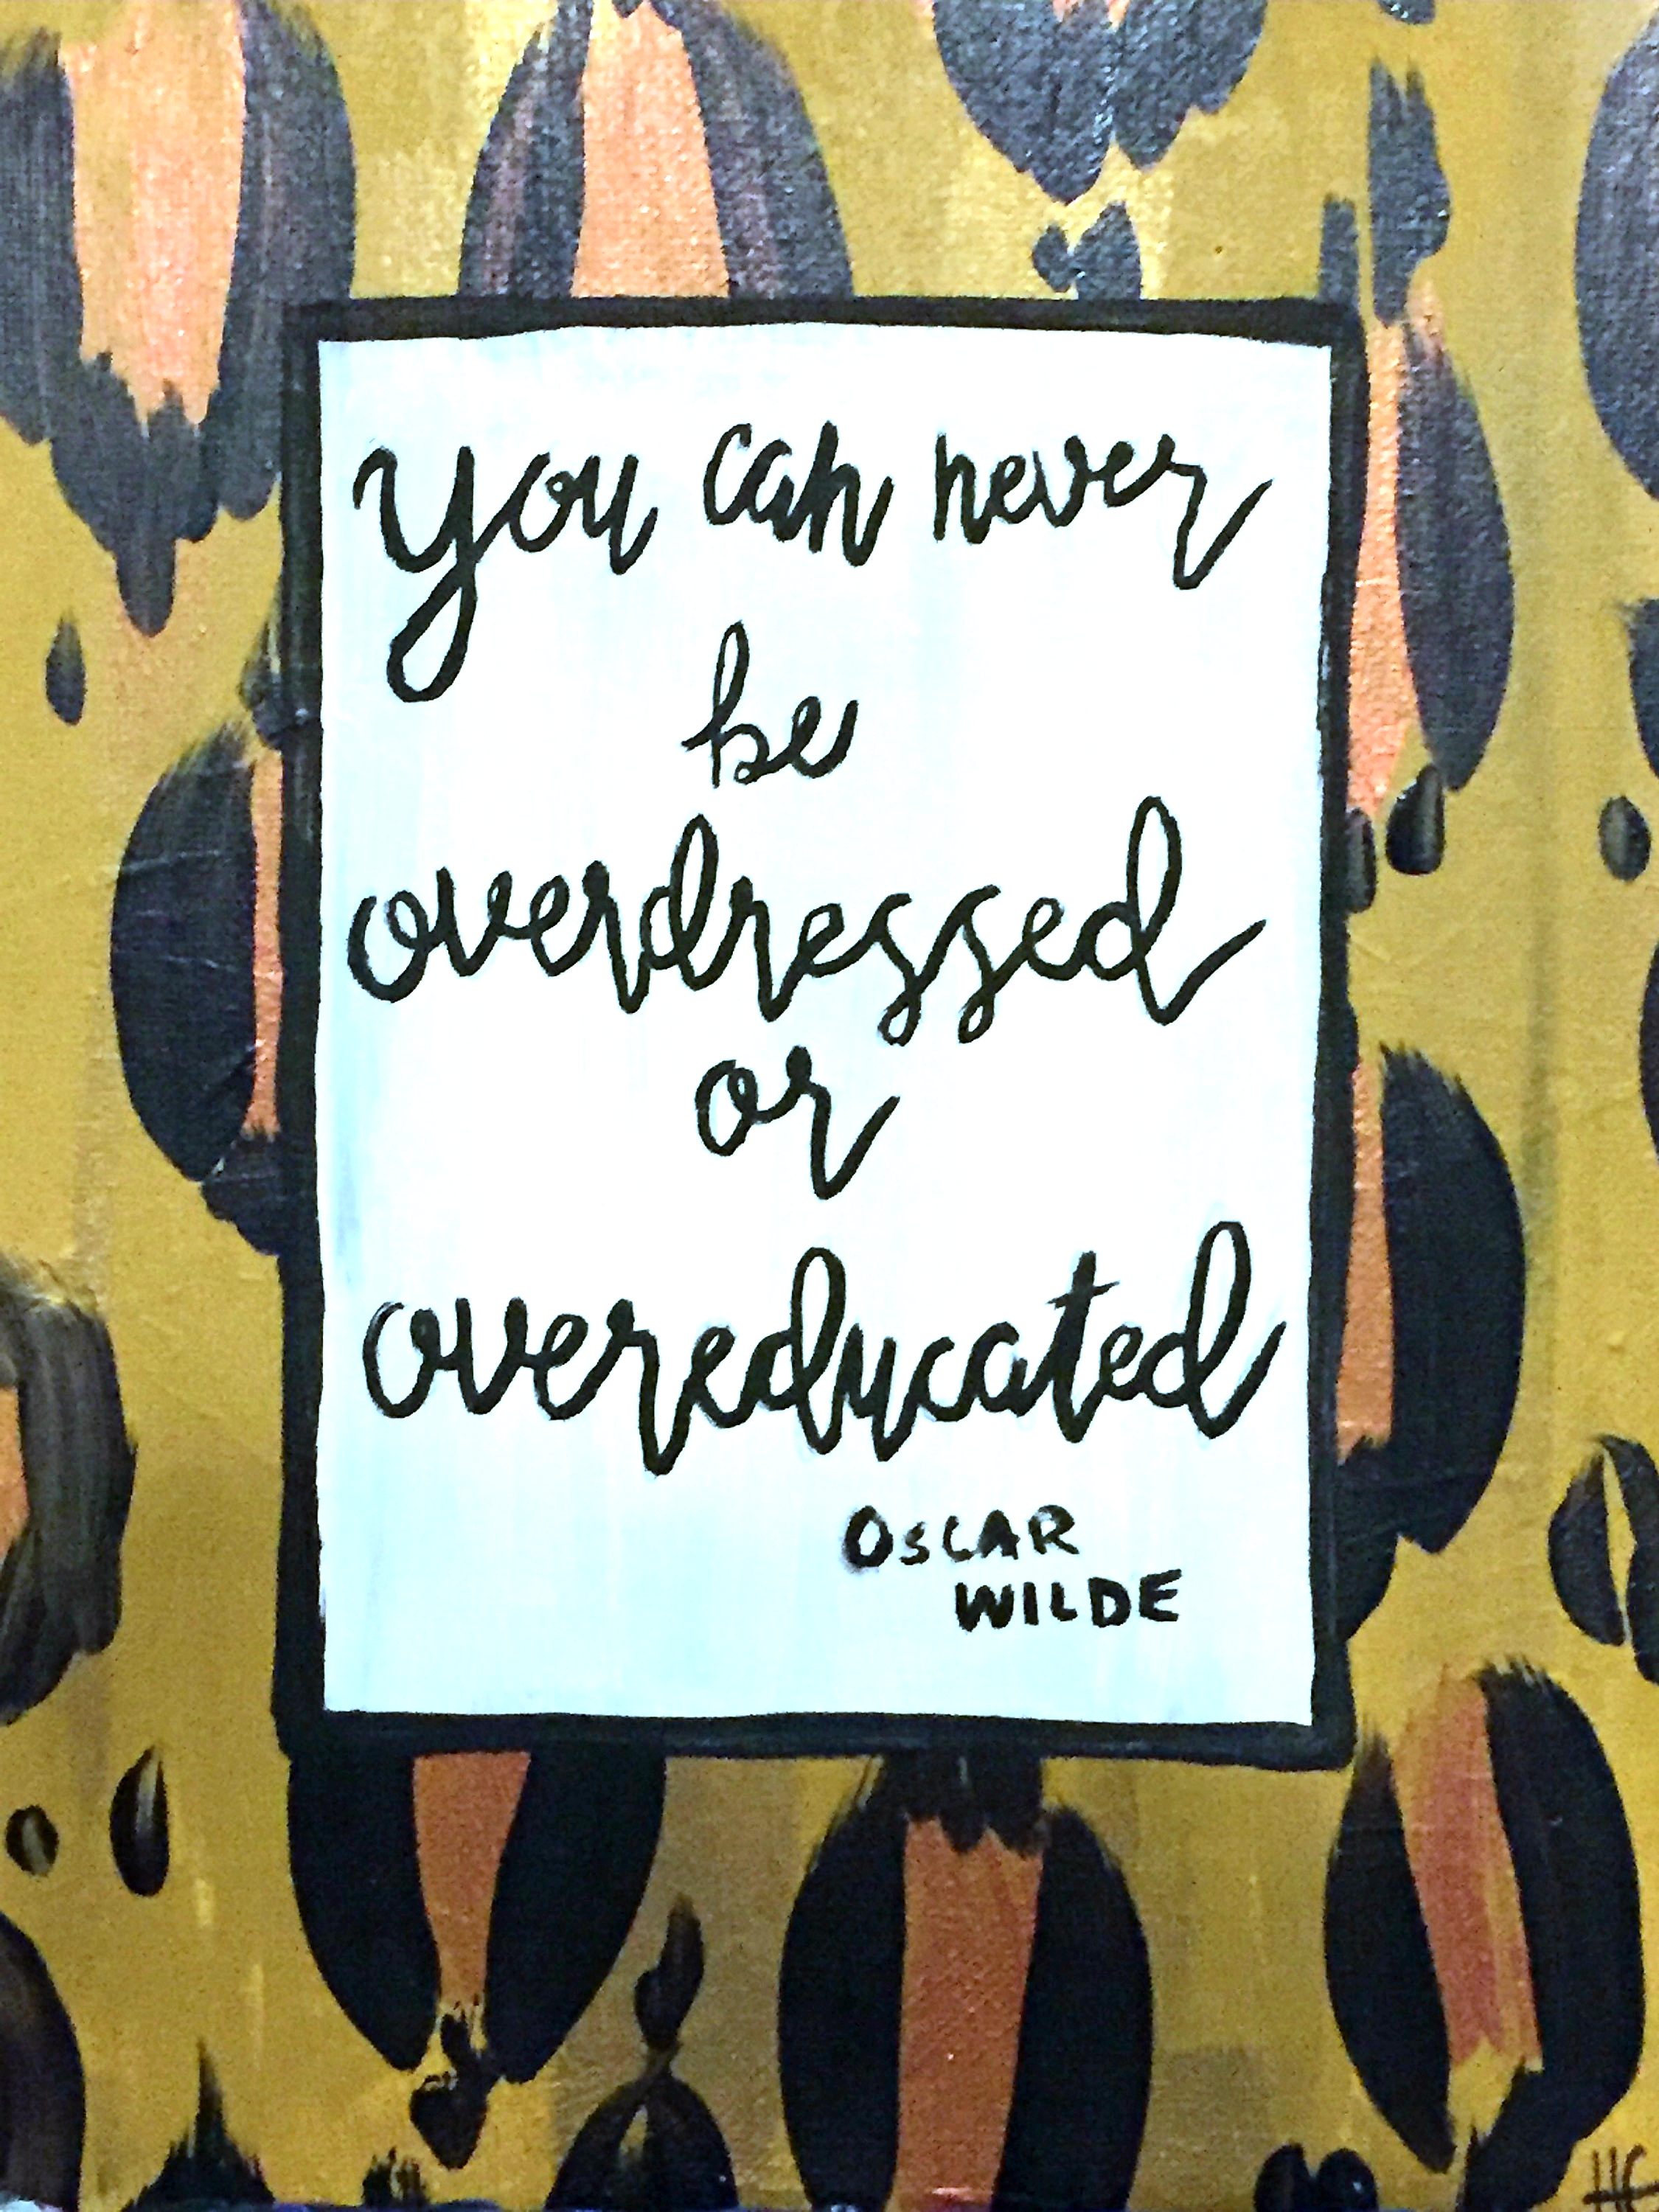 you can never
be
overdressed
or
overeducated
OSCAR
WILDE